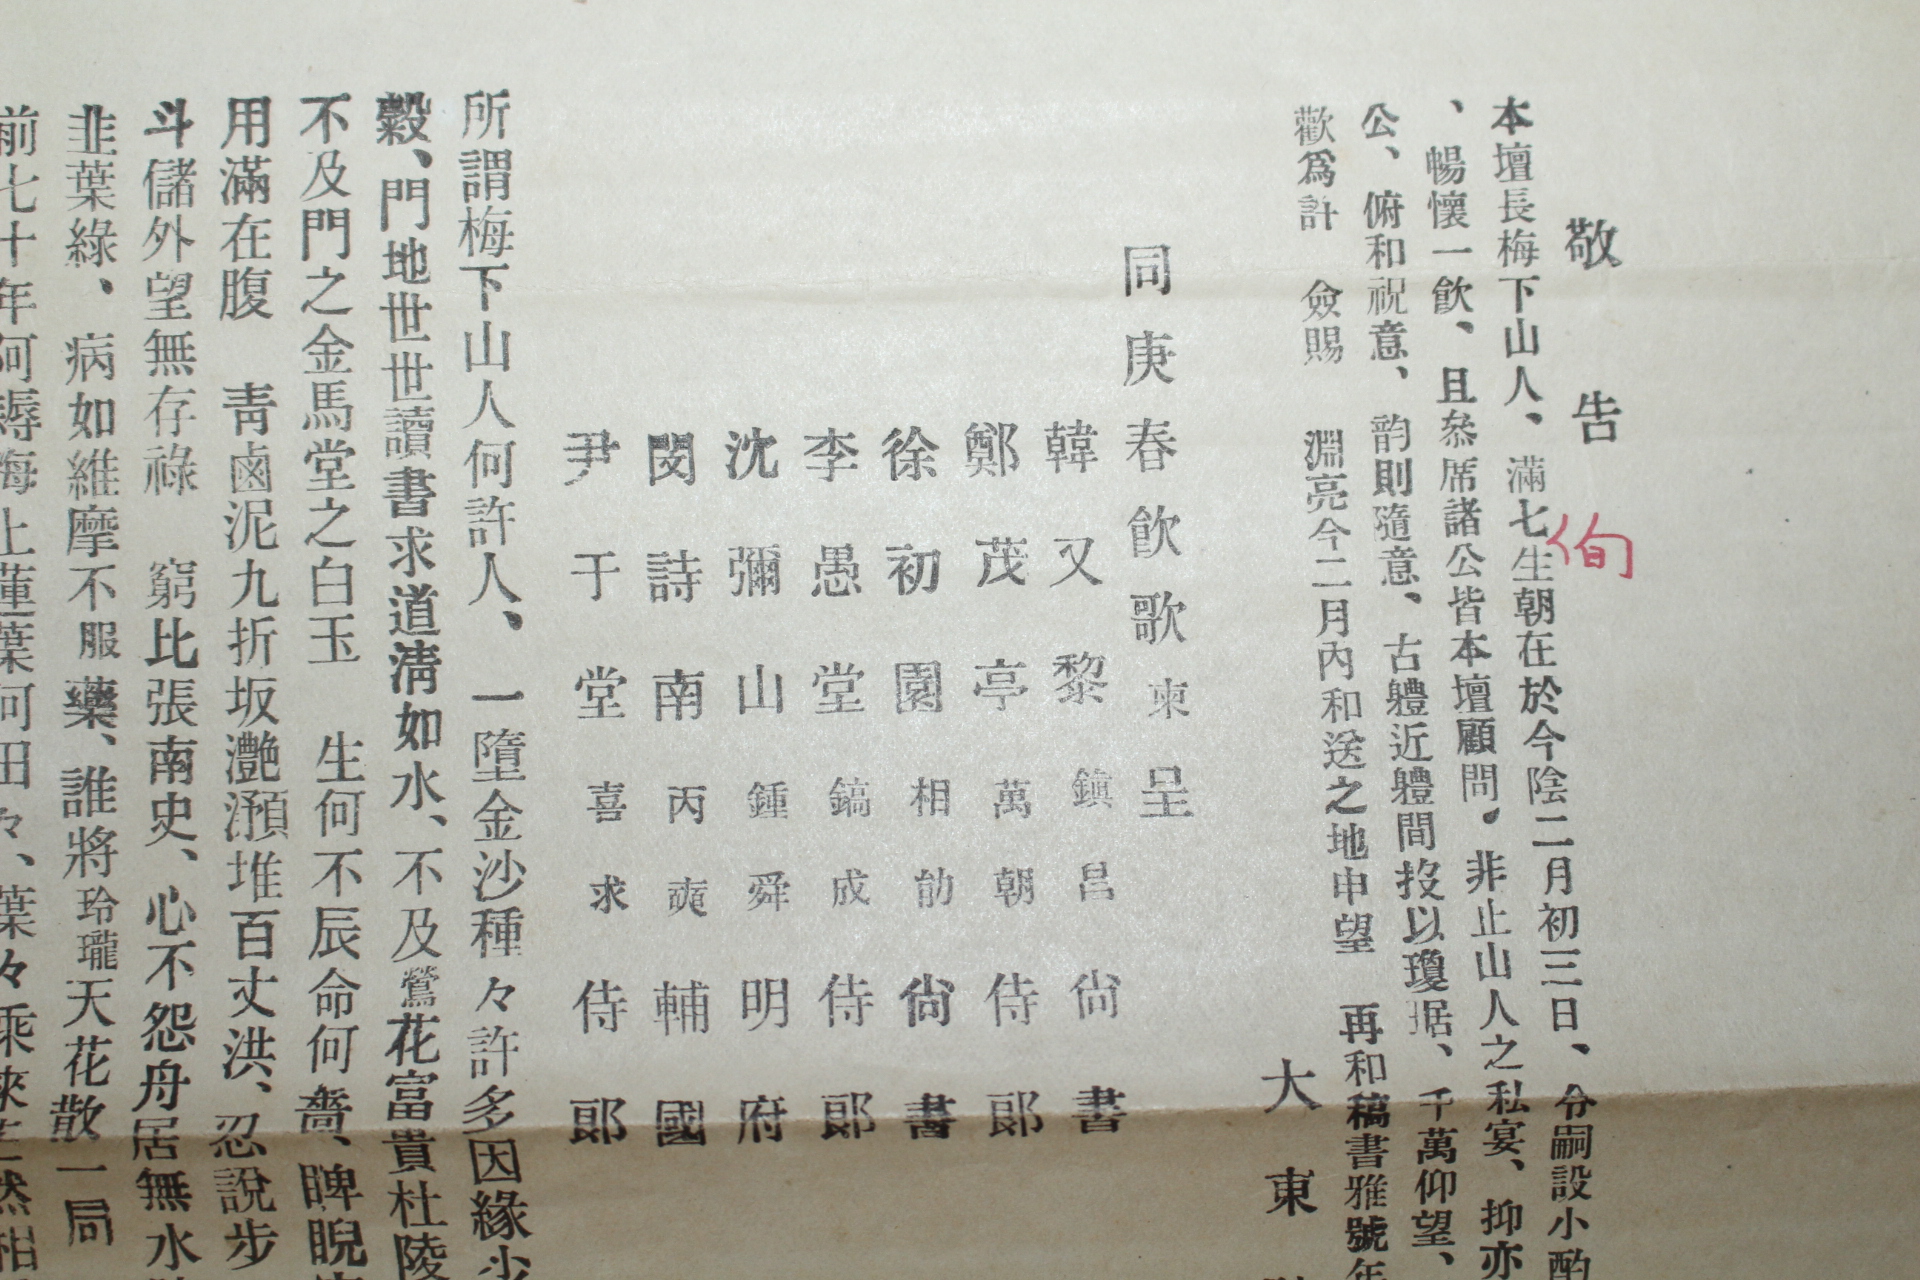 敬告
本壇長梅下山人、滿七生朝在於今陰二月初三日、令嗣設小酌
、暢懷一飮、且叅席諸公皆本壇顧問、非止山人之私宴、抑亦
公、俯和祝意、韵則隨意、古體近體間投以瓊琚、千萬仰望、
歡爲計 僉賜 淵亮今二月內和送之地申望 再和稿書雅號年
大東
同庚春飮歌柬呈
韓又黎鎭昌尙書
鄭茂亭萬朝侍郞
徐初園相勛尙書
李愚堂鎬成侍郞
沈彌山鍾舜明府
閔詩南丙奭輔國
尹于堂喜求侍郞
所謂梅下山人何許人、一墮金沙種々許多因緣少
穀、門地世世讀書求道淸如水、不及鶯花富貴杜陵
不及門之金馬堂之白玉 生何不辰命何嗇、睥睨
用滿在腹 靑鹵泥九折坂灧澦堆百丈洪、忍說步
斗儲外望無存祿 窮比張南史、心不怨舟居無水
韭葉綠、病如維摩不服藥、誰將玲瓏天花散一局
前七十年何 海上蓮葉何田々、葉々乘來 然相